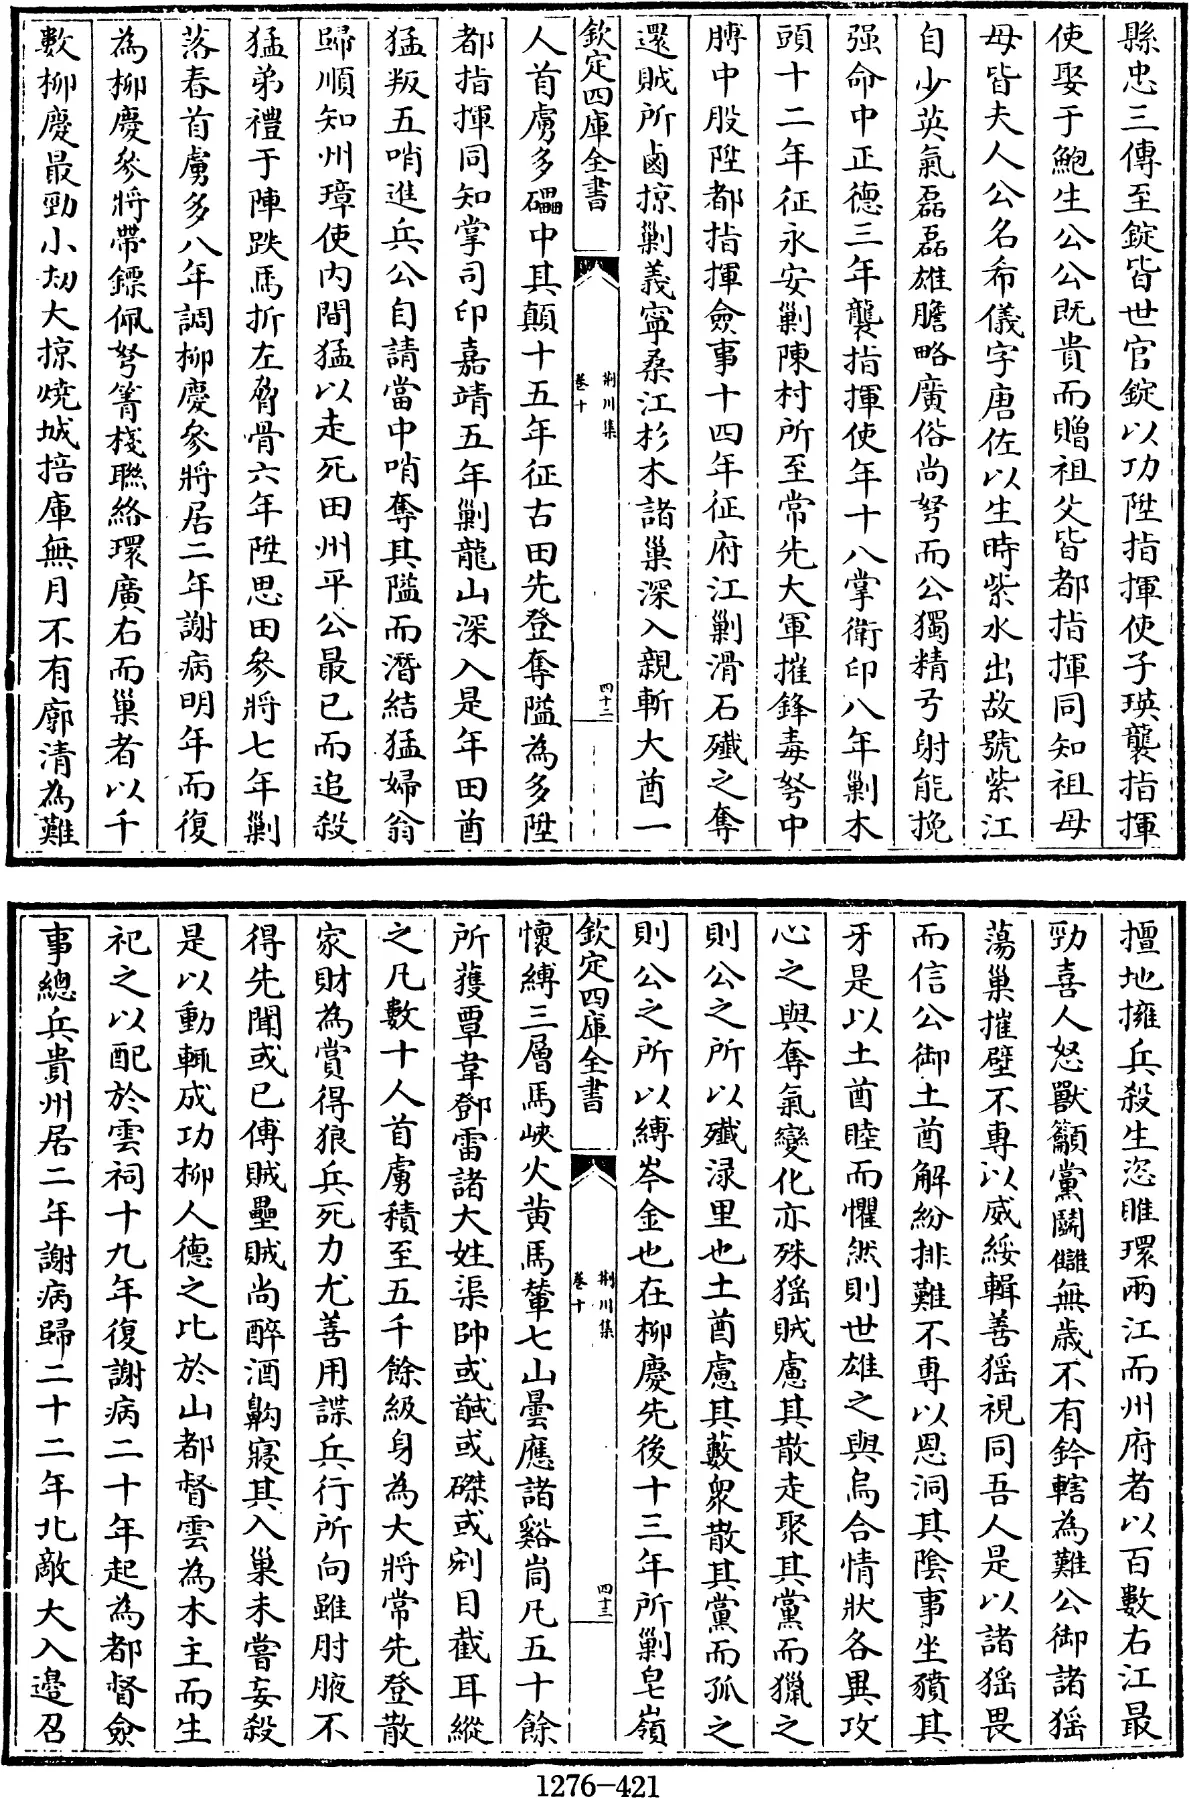 縣忠三傳至錠皆世官錠以功陞指揮使子瑛襲指揮
使娶于鮑生公公既貴而贈祖父皆都指揮同知祖母
母皆夫人公名希儀字唐佐以生時紫水出故號紫江
自少英氣磊磊雄膽略廣俗尚弩而公獨精弓射能挽
强命中正德三年襲指揮使年十八掌衛印八年剿木
頭十二年征永安剿陳村所至常先大軍摧鋒毒弩中
膊中股陞都指揮僉事十四年征府江剿滑石殲之奪
還賊所鹵掠剿義寧桑江杉木諸巢深入親斬大酋一
欽定四庫全書
荆川集
卷十
四十二
人首虜多礧中其顛十五年征古田先登奪隘為多陞
都指揮同知掌司印嘉靖五年剿龍山深入是年田酋
猛叛五哨進兵公自請當中哨奪其隘而潛結猛婦翁
歸順知州璋使内間猛以走死田州平公最已而追殺
猛弟禮于陣跌馬折左脅骨六年陞思田參將七年剿
落春首虜多八年調柳慶參將居二年謝病明年而復
為柳慶參將帶鏢佩弩箐棧聯絡環廣右而巢者以千
數柳慶最勁小刼大掠燒城掊庫無月不有廓清為難
擅地擁兵殺生恣睢環兩江而州府者以百數右江最
勁喜人怒獸籲黨鬭讎無歲不有鈐轄為難公御諸猺
蕩巢摧壁不專以威綏輯善猺視同吾人是以諸猺畏
而信公御土酋解紛排難不專以恩洞其陰事坐豶其
牙是以土酋睦而懼然則世雄之與烏合情狀各異攻
心之與奪氣變化亦殊猺賊慮其散走聚其黨而獵之
則公之所以殲渌里也土酋慮其藪衆散其黨而孤之
則公之所以縛岑金也在柳慶先後十三年所剿皂嶺
欽定四庫全書
荆川集
卷十
四十三
懷縛三層馬峽火黄馬輦七山曇應諸谿峝凡五十餘
所獲覃韋鄧雷諸大姓渠帥或馘或磔或剜目截耳縱
之凡數十人首虜積至五千餘級身為大將常先登散
家財為賞得狼兵死力尤善用諜兵行所向雖肘腋不
得先聞或已傅賊壘賊尚醉酒齁寢其入巢未嘗妄殺
是以動輒成功柳人德之比於山都督雲為木主而生
祀之以配於雲祠十九年復謝病二十年起為都督僉
事總兵貴州居二年謝病歸二十二年北敵大入邉召
1276-421